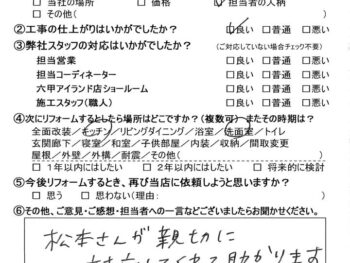 □ 当社の場所 □ 価格 ☑ 担当者の人柄
□ その他(
②工事の仕上がりはいかがでしたか? ☑良い □普通 □悪い
③弊社スタッフの対応はいかがでしたか? (ご対応していない場合チェック不要)
担当営業 □良い □普通 □悪い
担当コーディネーター □良い □普通 □悪い
六甲アイランド店ショールーム □良い □普通 □悪い
施工スタッフ(職人) □良い □普通 □悪い
④次にリフォームするとしたら場所はどこですか?(複数可)またその時期は?
全面改装/キッチン/リビングダイニング/浴室/洗面室/トイレ
玄関廊下/寝室/和室/子供部屋/内装/収納/間取変更
屋根/外壁/外構/耐震/その他(
□1年以内にはしたい □2年以内にはしたい □将来的に検討
⑤今後リフォームするとき、再び当店に依頼しようと思いますか?
□思う □思わない(理由:
⑥その他、ご意見・ご感想・担当者への一言などございましたらお聞かせください。
松本さんが親切に
対応してくれて助かります